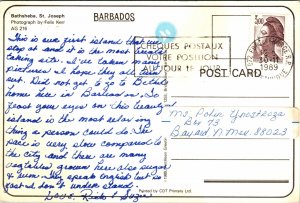 Bathsheba, St. Joseph
Photograph by Felix Kerr
AG 216
BARBADOS
This is our first island that we
stop at and it is the most breath
taking site. I've taken many
pictures & hope they all turn
out. Did not get to go to Beth's
home here in Barbados. To
feast your eyes on this beauty
island is the most relaxing
thing a person could do. The
pace is very slow compared to
the city and there are many
vegetables grown here also sugar
& rum. They speak English but so
fast I don't understand.
Love, Rick & Suzie
CHEQUES POSTAUX
VOTRE PREMIER
AU
1989
POST CARD
Ms Polin
Box 73
Bayard N Mex. 88023
Printed by COT Printers Ltd.